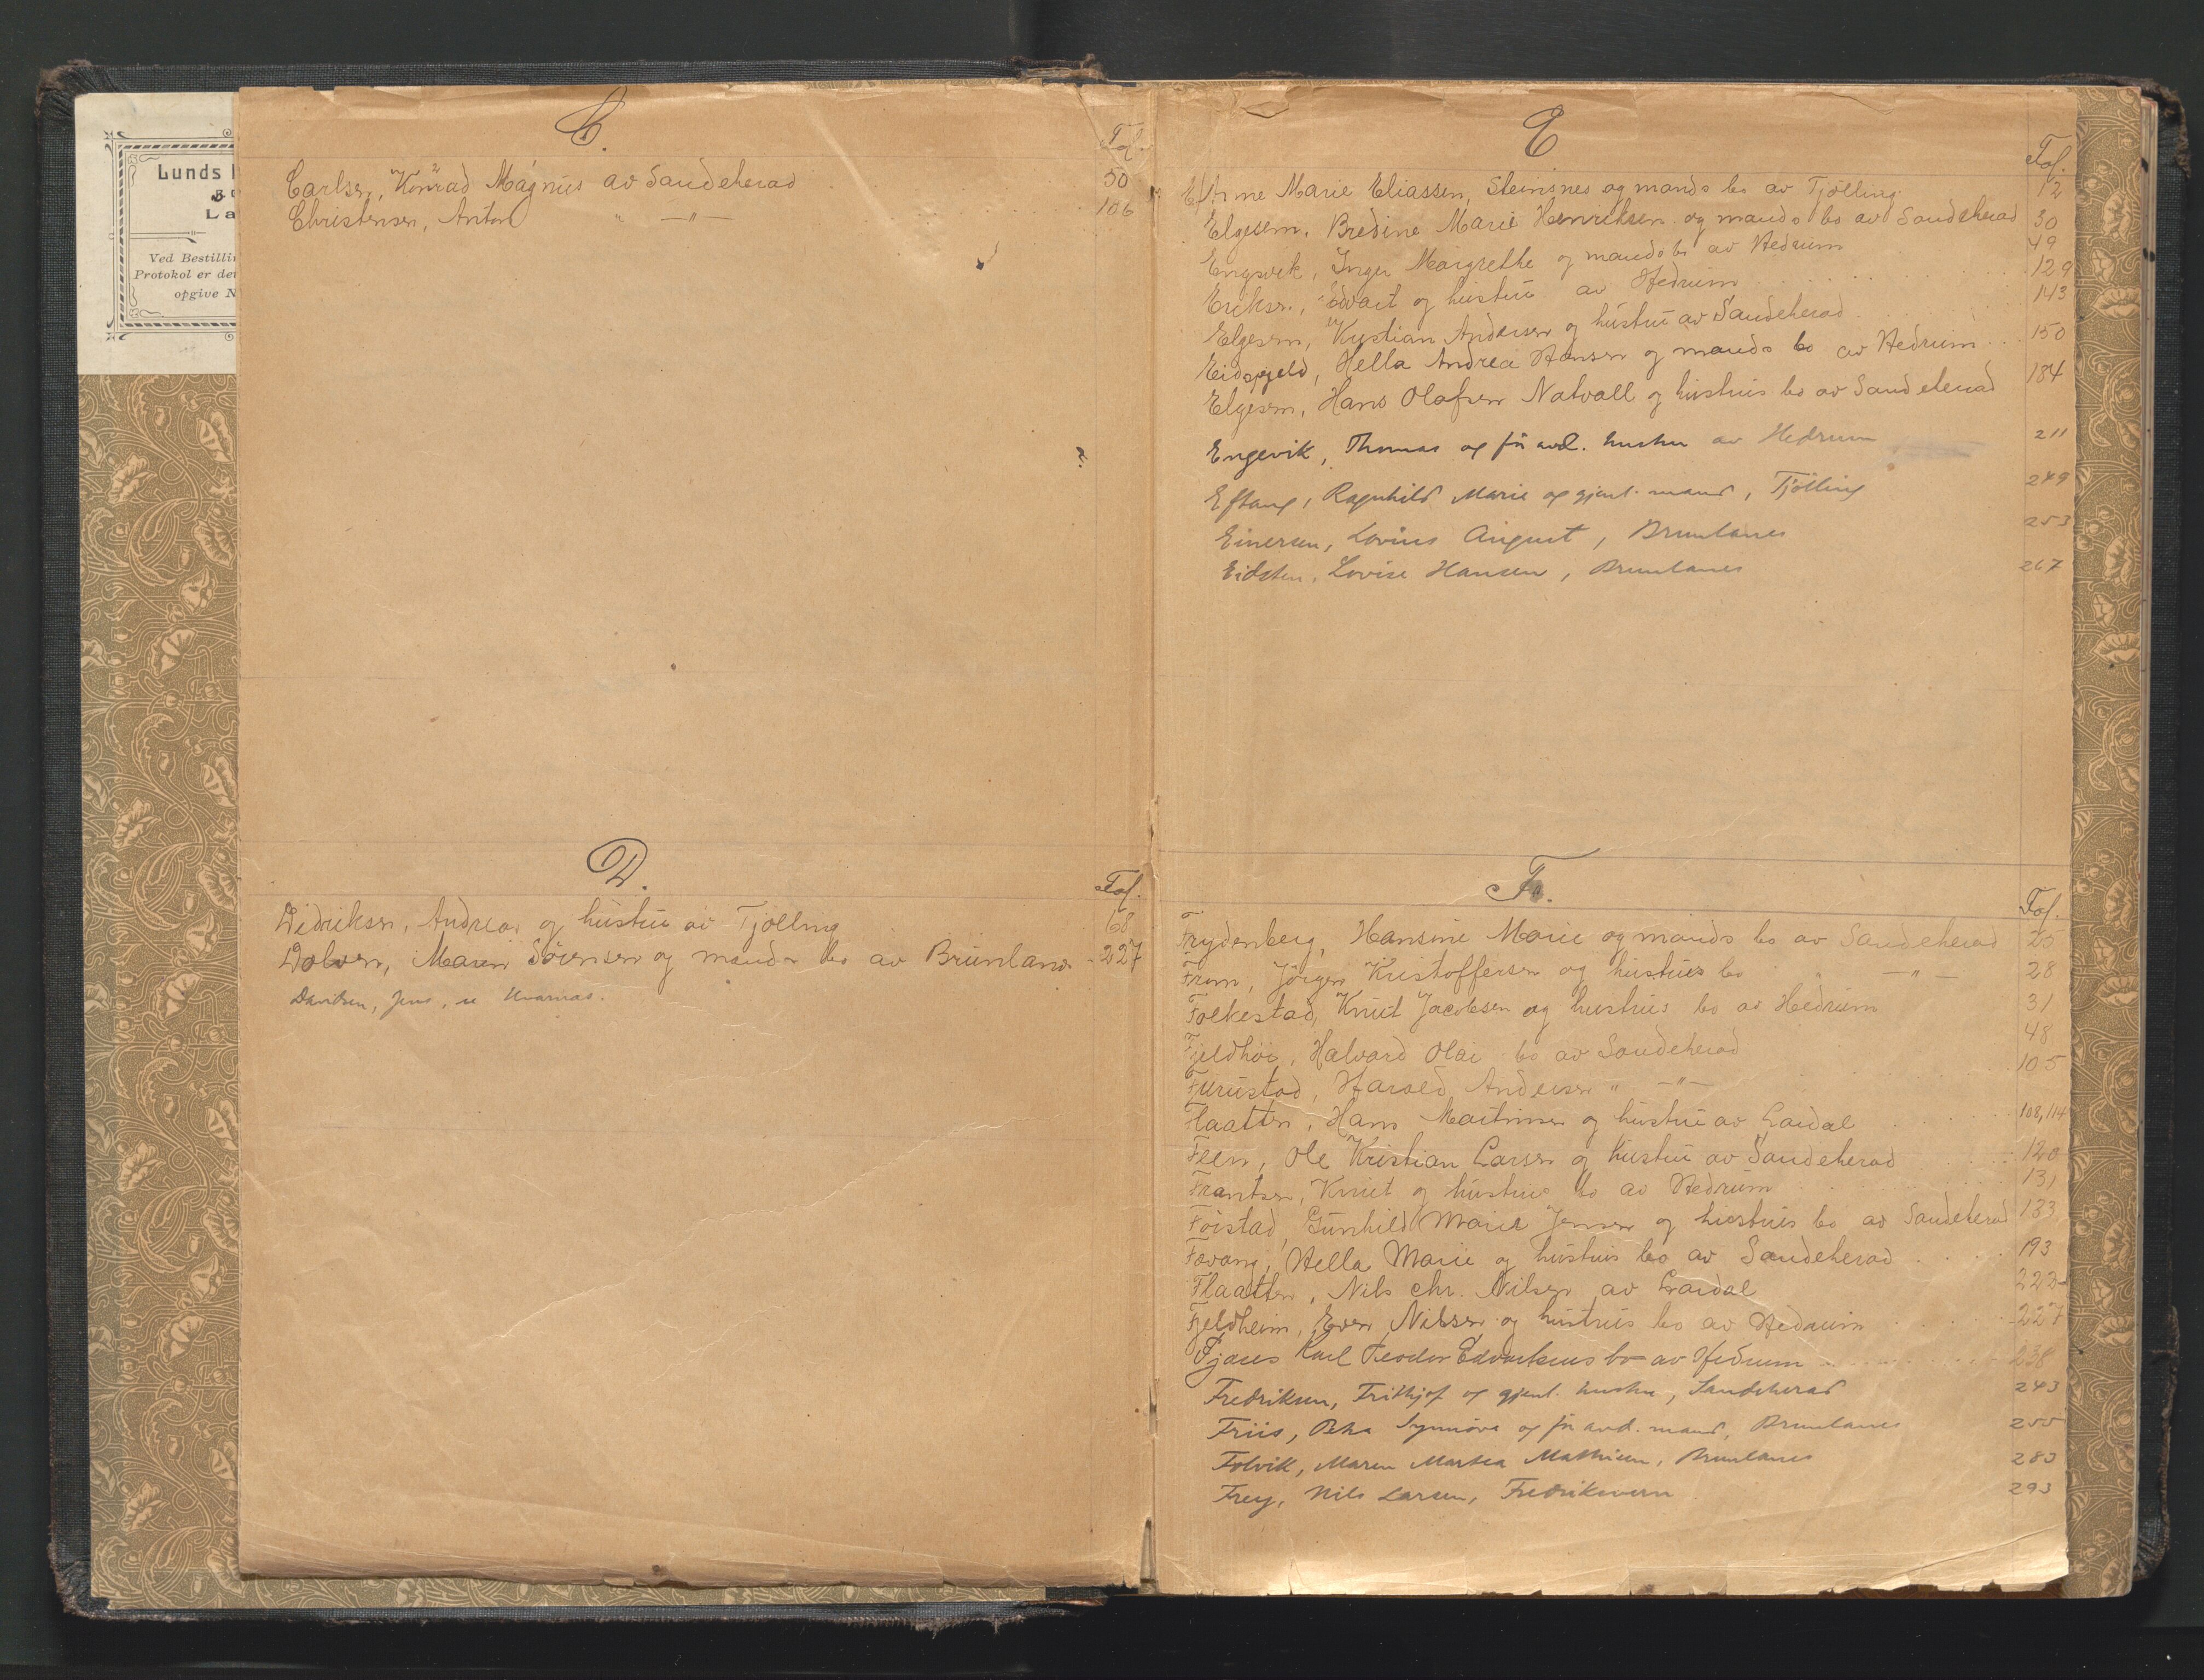 Lunds
La
Ved Bestilli
Protokol er de
opgive N
C.
Fol.
Carlsen, Konrad Magnus av Sandeherad 50
Christensen, Anton " —"— 106
D.
Fol.
Didriksen, Andreas og hustru av Tjølling 68
Dolven, Maren Sörensen og mands bo av Brunlanes 227
Davidsen, Jens,
E
Fol.
Anne Marie Eliassen, Steinsnes og mands bo av Tjölling 12
Elgesem, Bredine Marie Henriksen og mands bo av Sandeherad 30
Engsvik, Inger Margrethe og mands bo av Hedrum 49
Eriksen, Edvart og hustru av Hedrum 129
Elgesem, Kristian Andersen og hustru av Sandeherad 143
Eidsfjeld, Hella Andrea Hansen og mands bo av Hedrum 150
Elgesem, Hans Olafsen Natvall og hustrus bo av Sandeherad 184
Engevik, Thomas og før avd. hustru av Hedrum 211
Eftang, Ragnhild Marie og gjenl. mand, Tjölling 249
Einersen, Lovius August, Brunlanes 253
Eidsten, Lovise Hansen, Brunlanes 267
F.
Fol.
Frydenberg, Hansine Marie og mands bo av Sandeherad 25
From, Jörgen Kristoffersen og hustrus bo " —"— 28
Folkestad, Knut Jacobsen og hustrus bo av Hedrum 31
Fjeldhöi, Halvard Olai bo av Sandeherad 48
Furustad, Harald Andersen " —"— 105
Flaatten, Hans Martinsen og hustru av Lardal 108, 114
Feen, Ole Kristian Larsen og hustru av Sandeherad 120
Frantsen, Knut og hustrus bo av Hedrum 131
Föistad, Gunhild Marie Jensen og hustrus bo av Sandeherad 133
Fevang, Hella Marie og hustrus bo av Sandeherad 193
Flaatten, Nils Chr. Nilsen av Lardal 222
Fjeldheim, Even Nilsen og hustrus bo av Hedrum 227
Fjares Karl Teodor Edvartsens bo av Hedrum 238
Fredriksen, Fridtjof og gjenl. hustru, Sandeherad 243
Friis, Synnöve og før avd. mand, Brunlanes 255
Folvik, Maren Martea Mathisen, Brunlanes 283
Frey, Nils Larsen, Fredriksvern 293